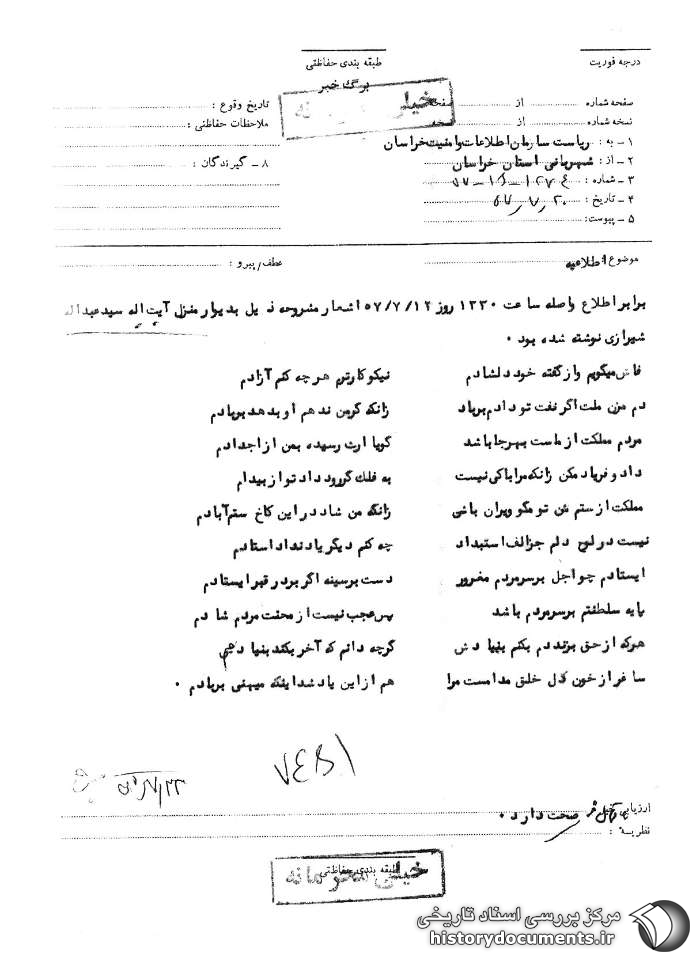 درجه فوریت
طبقه بندی حفاظتی
برگ خبر
خیلی محرمانه
صفحه شماره ........ از ........ صفحه
نسخه شماره ........ از ........ نسخه
۱ ــ به : ریاست سازمان اطلاعات وامنیت خراسان
۲ ــ از: شهربانی استان خراسان
۳ ــ شماره :
۴ ــ تاریخ : ۵۷/۷/۲۰
۵ ــ پیوست:
تاریخ وقوع :
ملاحظات حفاظتی :
۸ ــ گیرندگان :
موضوع : اطلاعیه
عطف/پیرو :
برابر اطلاع واصله ساعت ۱۳۳۰ روز ۵۷/۷/۱۲ اشعار مشروحه ذیل بدیوار منزل آیت اله سید عبداله
شیرازی نوشته شده بود .
فاش میگویم واز گفته خود دلشادم نیکو کارتوم هرچه کنم آزادم
دم مزن ملت اگر نفت تو دادم برباد زانکه گرمن ندهم او بدهد بربادم
مردم مملکت از ماست بهرجا باشد گویا ارث رسیده بمن از اجدادم
داد و فریاد مکن زانکه مرا باکی نیست به فلک گررود داد تو از بیدادم
مملکت از ستم من تو مگو ویران باشی زانکه من شاد در این کاخ ستم آبادم
نیست در لوح دلم جز الف استبداد چه کنم دیگر یاد نداد استادم
ایستادم چو اجل برسر مردم مغرور دست برسینه اگر بر در قبر ایستادم
پایه سلطنتم برسر مردم باشد پس عجب نیست از محنت مردم شادم
هرکه از حق بزند دم بکنم بنیادش گرچه دانم که آخر بکند بنیادم
ساغر از خون دل خلق مدامست مرا هم از این یاد شد اینکه میهنی بربادم .
ارزیابی خبر صحت دارد .
نظریه :
طبقه بندی حفاظتی
خیلی محرمانه
مرکز بررسی اسناد تاریخی
historydocuments.ir